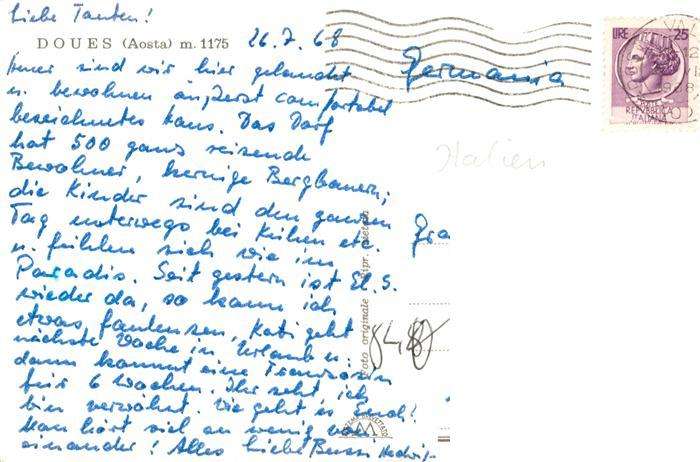 Liebe Tanten!
DOUES (Aosta) m. 1175
26.7.68
sind wir hier gelandet
u. bewohnen äußerst comfortabel
bezeichnetes Haus. Das Dorf
hat 500 ganz reizende
Bewohner, kernige Bergbauern;
die Kinder sind den ganzen
Tag unterwegs bei Kühen etc.
u. fühlen sich wie im
Paradis. Seit gestern ist El. S.
wieder da, so kann ich
etwas faulenzen, Kati geht
nächste Woche in Urlaub u.
dann kommt eine Französin
für 6 Wochen. Ihr seht ich
bin verwöhnt. Wie geht es Euch?
Man hört viel zu wenig von
einander! Alles Liebe Hedwig
Germania
Italien
Gra
LIRE 25
REPVBBLICA
ITALIANA
Foto originale